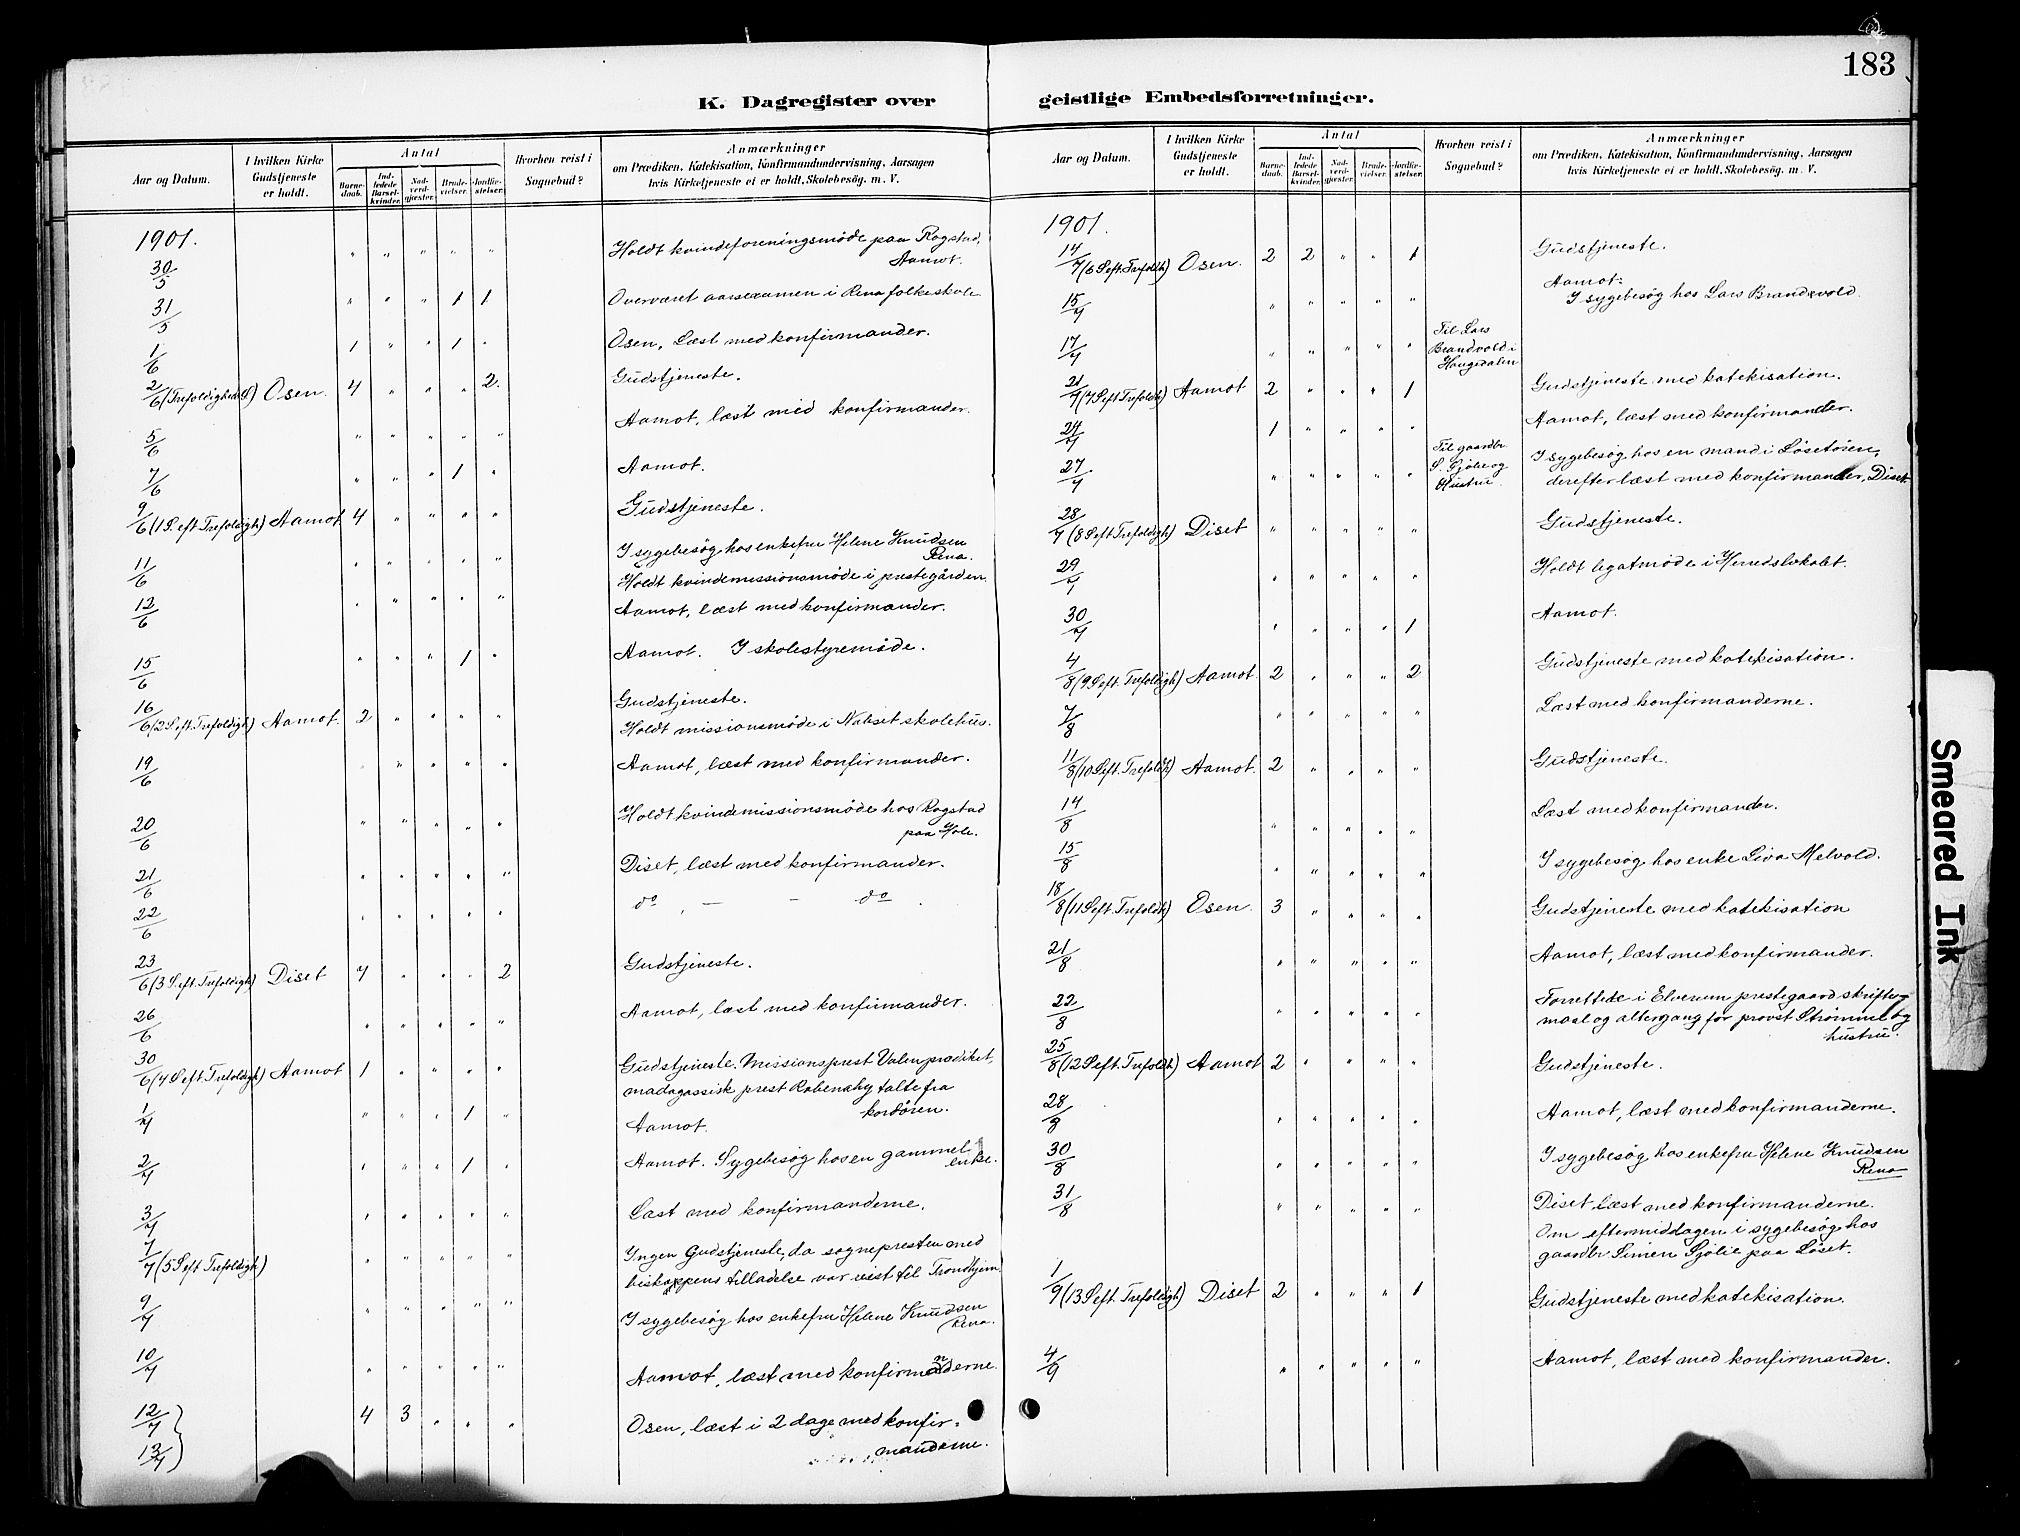 183
K. Dagregister over geistlige Embedsforretninger.
Aar og Datum. | I hvilken Kirke Gudstjeneste er holdt. | Antal | Barne-daab. | Ind-ledede Barsel-kvinder. | Nad-verd-gjæster. | Brude-vielser. | Jordfæ-stelser. | Hvorhen reist i Sognebud? | Anmærkninger om Prædiken, Katekisation, Konfirmandundervisning, Aarsagen hvis Kirketjeneste ei er holdt, Skolebesøg. m. V.
1901.
30/5 | " | " | " | " | " | Holdt kvindeforeningsmøde paa Rogstad, Aamot.
31/5 | " | " | " | 1 | 1 | Overværet aarsexamen i Rena folkeskole
1/6 | 1 | " | " | 1 | " | Osen, Læst med konfirmander.
2/6 (Trefoldigheds S) | Osen. | 4 | " | " | " | 2. | Gudstjeneste.
5/6 | " | " | " | " | " | Aamot, læst med konfirmander.
7/6 | " | " | " | 1 | " | Aamot.
9/6 (1 S. eft. Trefoldigh) | Aamot | 4 | " | " | " | " | Gudstjeneste.
11/6 | " | " | " | " | " | I sygebesøg hos enkefru Helene Knudsen Rena.
Holdt kvindemissionsmøde i prestegården
12/6 | " | " | " | " | " | Aamot, læst med konfirmander.
15/6 | " | " | " | 1 | " | Aamot. I skolestyremøde.
16/6 (2 S. eft. Trefoldigh) | Aamot. | 2 | " | " | " | " | Gudstjeneste.
Holdt missionsmøde i Nabset skolehus.
19/6 | " | " | " | " | " | Aamot, læst med konfirmander.
20/6 | " | " | " | " | " | Holdt kvindemissionsmøde hos Rogstad
paa Hole.
21/6 | " | " | " | " | " | Diset, læst med konfirmander.
22/6 | " | " | " | " | " | do , — - do .
23/6 (3 S. eft. Trefoldigh) | Diset | 7 | " | " | " | 2 | Gudstjeneste.
26/6 | " | " | " | " | " | Aamot, læst med konfirmander.
30/6 (4 S eft. Trefoldigh) | Aamot | 1 | " | " | " | " | Gudstjeneste. Missionsprest Valen prædiket,
madagassisk prest Rabenahy talte fra
kordören.
1/7 | " | " | " | 1 | " | Aamot.
2/7 | " | " | " | 1 | " | Aamot. Sygebesøg hos en gammel enke.
3/7 | " | " | " | " | " | Læst med konfirmanderne.
7/7 (5 S eft Trefoldigh) | " | " | " | " | " | Ingen Gudstjeneste, da sognepresten med
biskoppens tilladelse var reist til Trondhjem.
9/7 | " | " | " | " | " | I sygebesøg hos enkefru Helene Knudsen
Rena.
10/7 | " | " | " | " | " | Aamot, læst med konfirmanderne.
12/7 } 13/7 | 4 | 3 | " | " | " | Osen, læst i 2 dage med konfir-
manderne.
Aar og Datum. | I hvilken Kirke Gudstjeneste er holdt. | Antal | Barne-daab. | Ind-ledede Barsel-kvinder. | Nad-verd-gjæster. | Brude-vielser. | Jordfæ-stelser. | Hvorhen reist i Sognebud? | Anmærkninger om Prædiken, Katekisation, Konfirmandundervisning, Aarsagen hvis Kirketjeneste ei er holdt, Skolebesøg. m. V.
1901.
14/7 (6 S eft. Trefoldh) | Osen. | 2 | 2 | " | " | 1 | Gudstjeneste.
15/7 | " | " | " | " | " | Aamot:
I sygebesøg hos Lars Brandvold.
17/7 | " | " | " | " | " | Til Lars Brandvold i Haugedalen
21/7 (7 S eft Trefoldh) | Aamot | 2 | " | " | " | 1 | Gudstjeneste med katekisation.
24/7 | 1 | " | " | " | " | Aamot, læst med konfirmander.
27/7 | " | " | " | " | " | Til gaardbr. S. Sjölie og Hustru. | I sygebesøg hos en mand i Løsetøren,
derefter læst med konfirmander, Diset
28/7 (8 S eft Trefoldigh) | Diset | " | " | " | " | " | Gudstjeneste.
29/7 | " | " | " | " | " | Holdt legatmøde i Herredslokalet.
30/7 | " | " | " | " | 1 | Aamot.
4/8 (9 S eft. Trefoldigh) | Aamot. | 2 | " | " | " | 2 | Gudstjeneste med katekisation.
7/8 | " | " | " | " | " | Læst med konfirmanderne.
11/8 (10 S eft. Trefoldh) | Aamot. | 2 | " | " | " | " | Gudstjeneste.
14/8 | " | " | " | " | " | Læst med konfirmander.
15/8 | " | " | " | " | " | I sygebesøg hos enke Liva Melvold.
18/8 (11 S eft. Trefoldh) | Osen. | 3 | " | " | " | " | Gudstjeneste med katekisation
21/8 | " | " | " | " | " | Aamot, læst med konfirmander.
22/8 | " | " | " | " | " | Forrettede i Elverum prestegaard skrifte-
maal og altergang for provst Strømme og
hustru.
25/8 (12 S eft. Trefoldh) | Aamot | 2 | " | " | " | " | Gudstjeneste.
28/8 | " | " | " | " | " | Aamot, læst med konfirmanderne.
30/8 | " | " | " | " | " | I sygebesøg hos enkefru Helene Knudsen
Rena
31/8 | " | " | " | " | " | Diset læst med konfirmanderne.
Om eftermiddagen i sygebesøg hos
gaardbr Simen Sjölie paa Løset.
1/9 (13 S eft. Trefoldigh) | Diset | 2 | " | " | " | 1 | Gudstjeneste med katekisation.
4/9 | " | " | " | " | " | Aamot, læst med konfirmander.
Smeared Ink